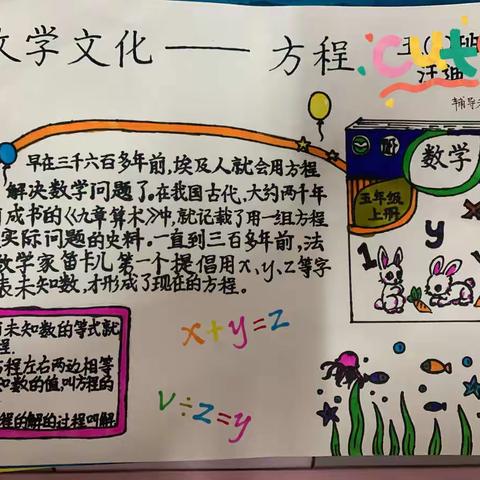 数学文化——方程
cut
五( )班
汪
辅导
早在三千六百多年前,埃及人就会用方程
解决数学问题了。在我国古代,大约两千年
前成书的《九章算术》中,就记载了用一组方程
实际问题的史料。一直到三百多年前,法
数学家笛卡儿第一个提倡用x、y、z等字
表未知数,才形成了现在的方程。
数学
五年级
上册
x
1
y
x+y=z
v÷z=y
有未知数的等式就
程.
方程左右两边相等
知数的值,叫方程的
程的解的过程叫解